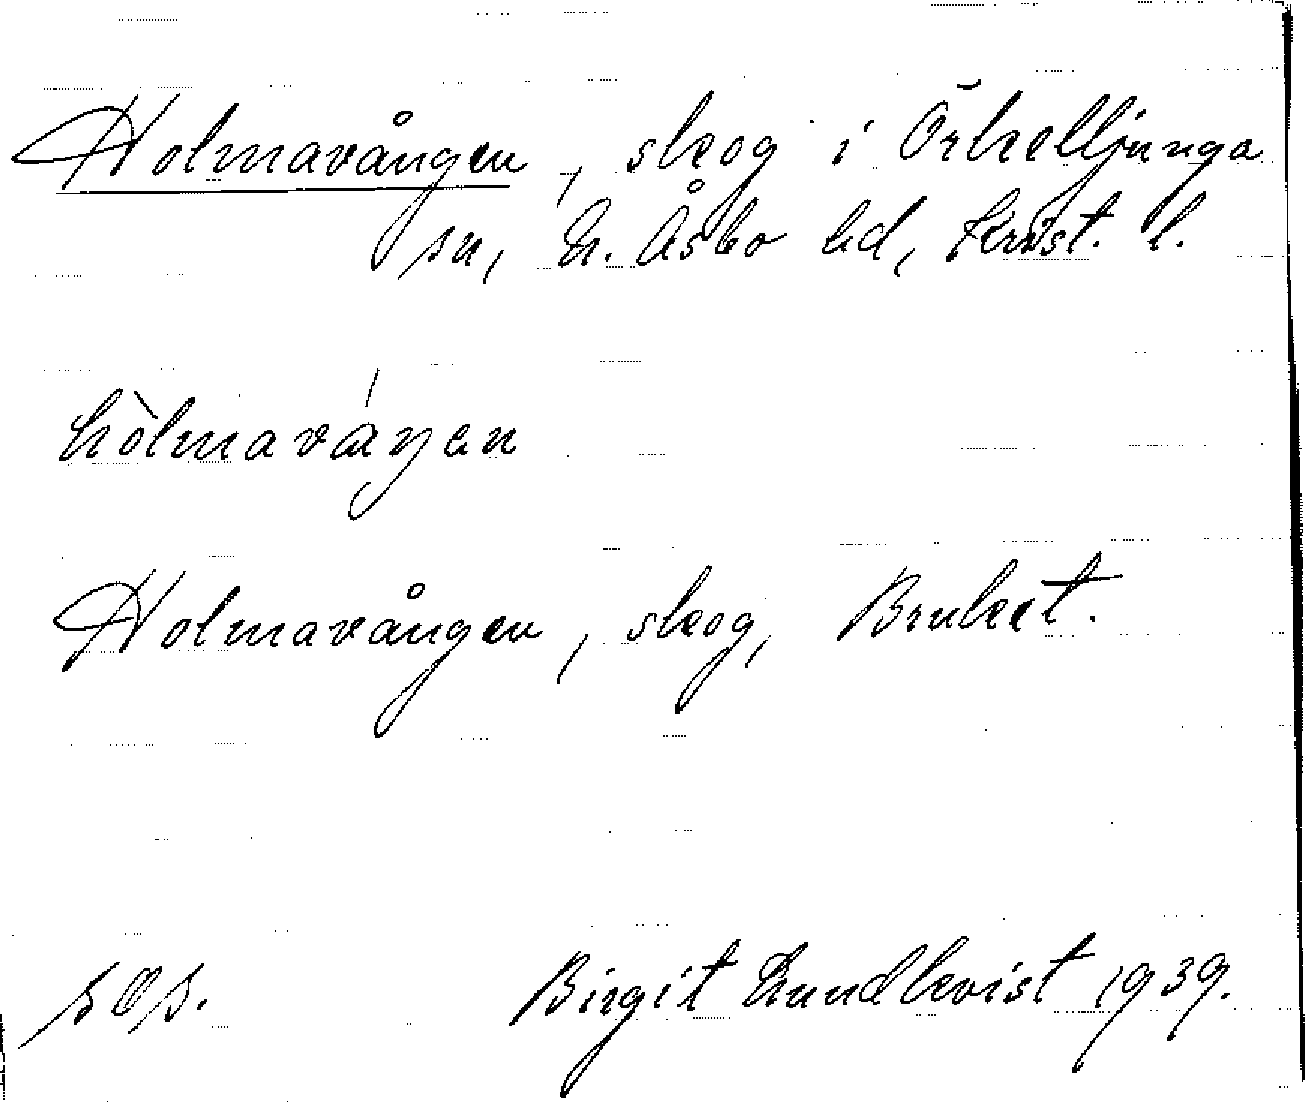 Holmavången, skog i Örkelljunga
sn, N. Åsbo hd, Krist. l.
hòlmaváŋen
Holmavången, skog, Bruket.
Birgit Lundkvist 1939.